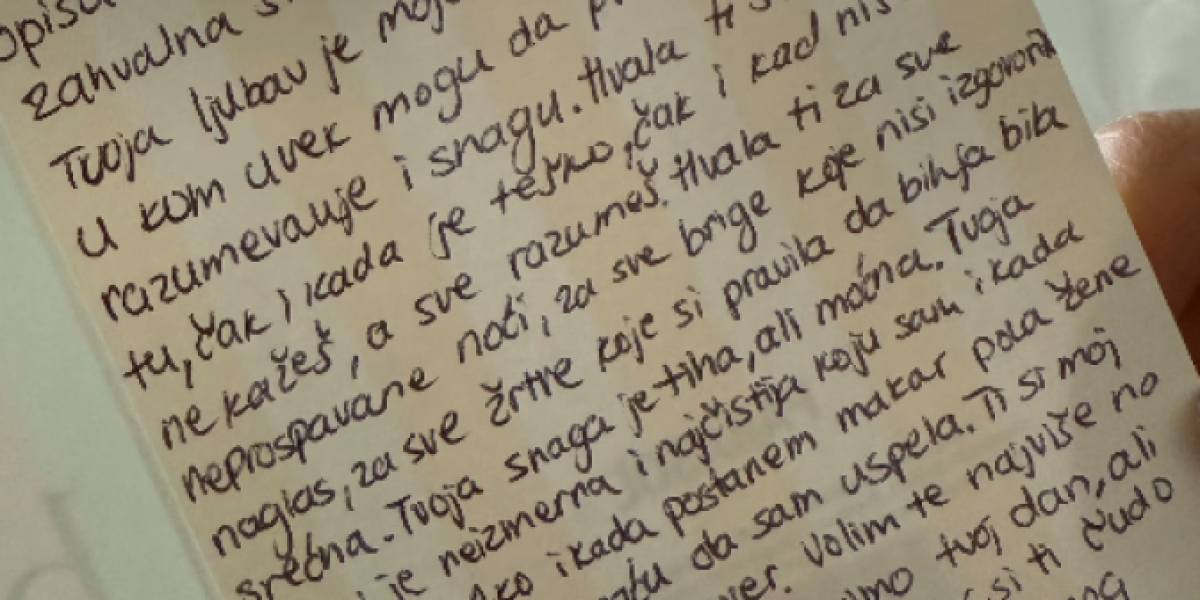 zahvalna
Tvoja ljubav je
u kom uvek mogu da
razumevanje i snagu. Hvala ti
tu, čak i kada je teško, čak i kad
ne kažeš, a sve razumeš. Hvala ti za sve
neprospavane noći, za sve brige koje nisi
naglas, za sve žrtve koje si pravila da bih ja bila
srećna. Tvoja snaga je tiha, ali moćna. Tvoja
je neizmerna i najčistija koju sam ikada
Ako ikada postanem makar pola žene
da sam uspela. Ti si moj
Volim te najviše no
tvoj dan, ali
si ti čudo